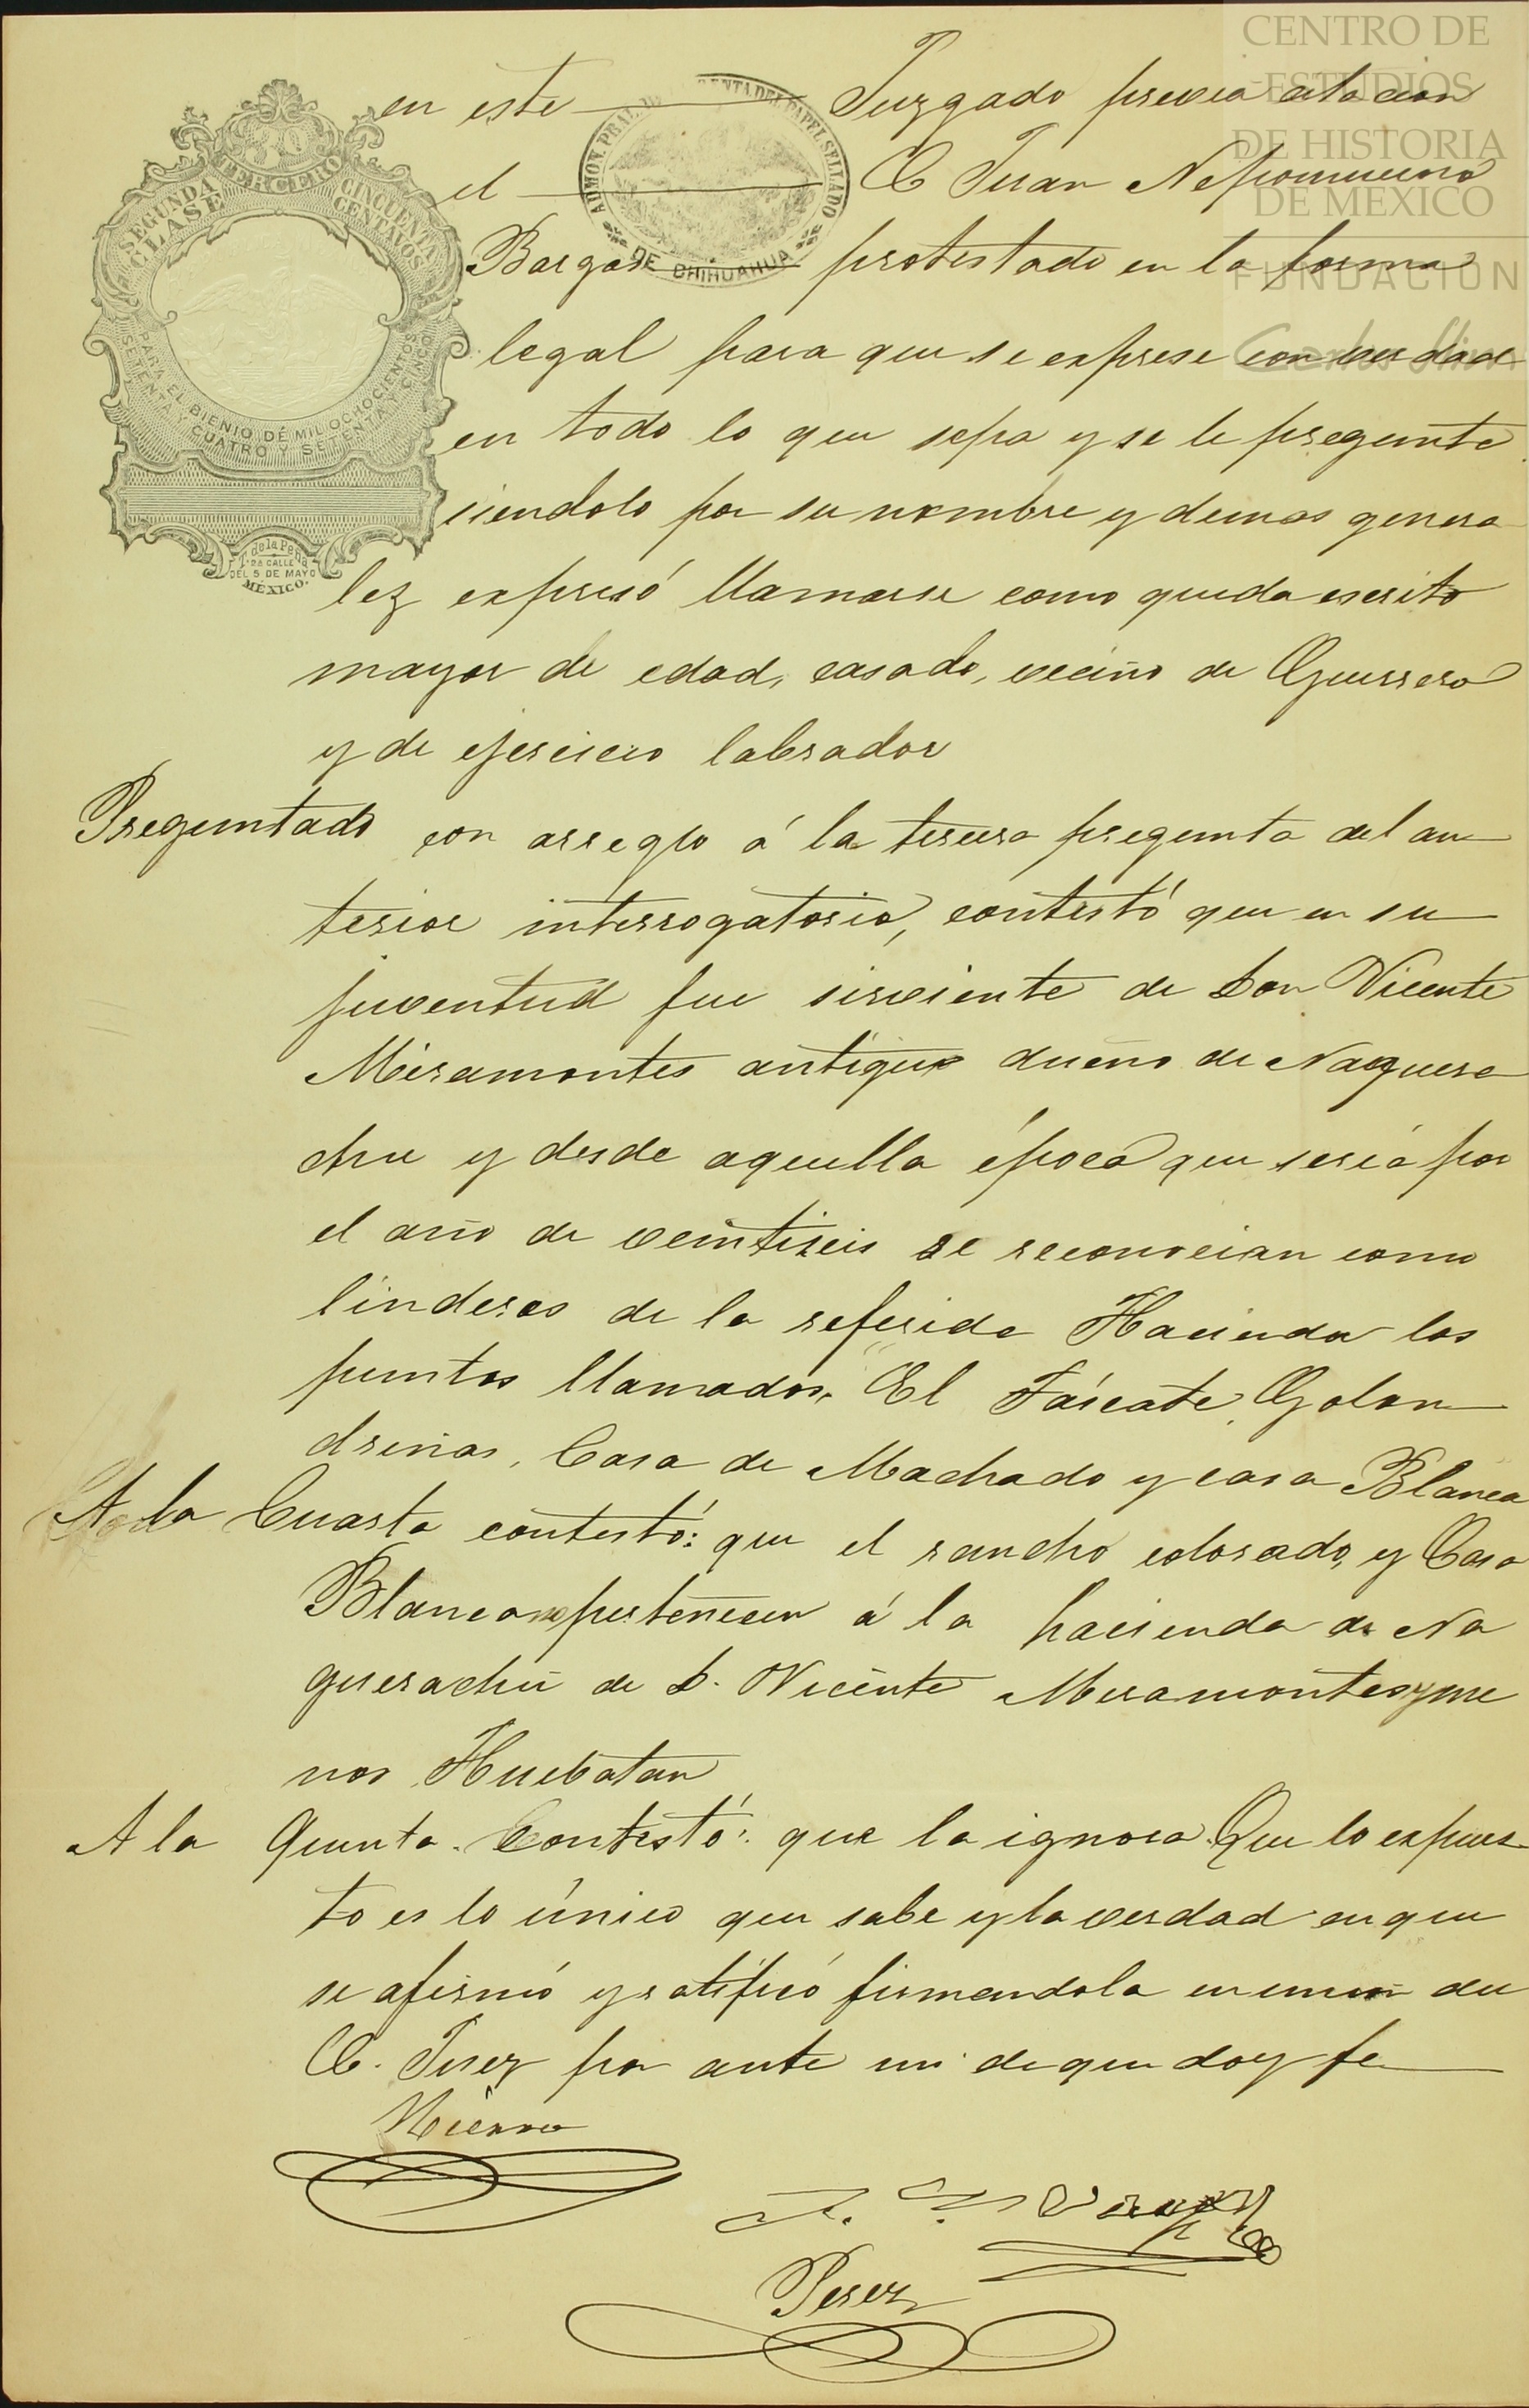 CENTRO DE
ESTUDIOS
DE HISTORIA
DE MÉXICO
FUNDACIÓN
Carlos Slim
SEGUNDA CLASE TERCERO CINCUENTA CENTAVOS
PARA EL BIENIO DE MIL OCHOCIENTOS
SETENTA Y CUATRO Y SETENTA Y CINCO
T. de la Peña
2ª CALLE
DEL 5 DE MAYO
MÉXICO.
ADMON. PRAL. RENTA DEL PAPEL SELLADO
DE CHIHUAHUA
en este Juzgado previa citacion
el C Juan Nepomuceno
Bargas protestado en la forma
legal para que se exprese con verdad
en todo lo que sepa y se le pregunte
siendolo por su nombre y demas genera
lez expresó llamarse como queda escrito
mayor de edad, casado, vecino de Guerrero
y de ejercicio labrador
Preguntado con arreglo á la tercera pregunta del an
terior interrogatorio, contestó que en su
juventud fue sirviente de Don Vicente
Miramontes antiguo dueño de Naquera
chu y desde aquella época que seria por
el año de veintiseis se reconocian como
linderos de la referida Hacienda los
puntos llamados, El Táscate, Golon
drinas, Casa de Machado y casa Blanca
A la Cuarta contestó: que el rancho colorado, y Casa
Blanca no pertenecen á la hacienda de Na
querachu de D. Vicente Miramontes y me
nos Huebatan
A la Quinta. Contestó: que la ignora. Que lo expues
to es lo único que sabe y la verdad en que
se afirmó y ratificó firmandola en union del
C. Juez por ante mi de que doy fe
J. N. Vargas
Perez